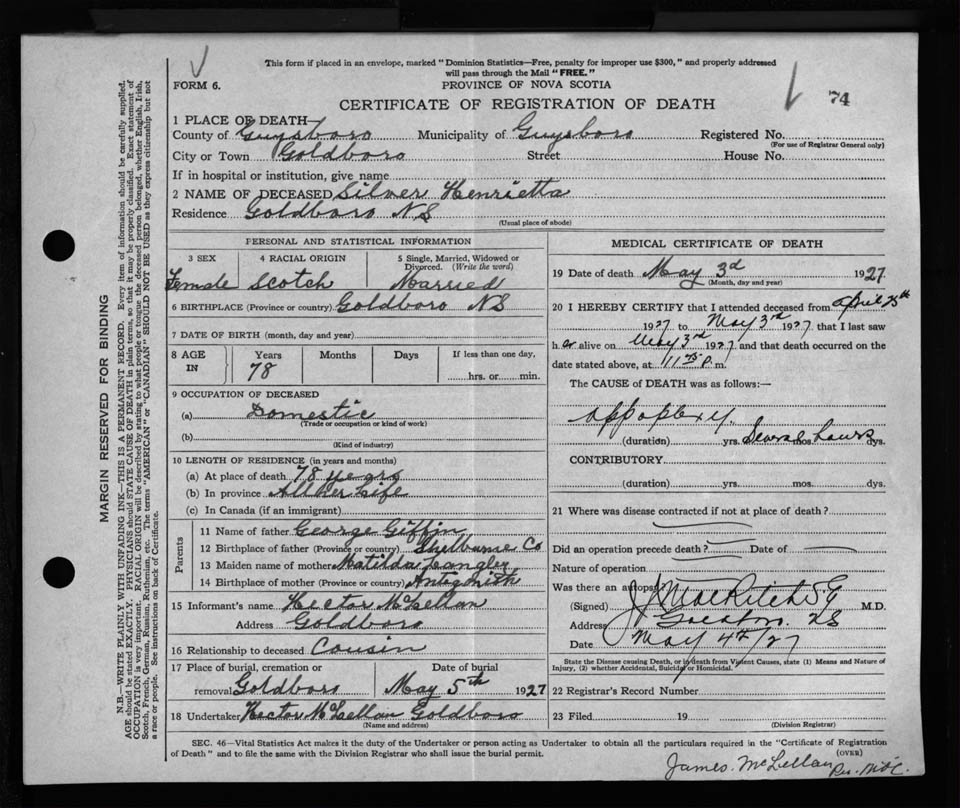 This form if placed in an envelope, marked "Dominion Statistics—Free, penalty for improper use $300," and properly addressed
will pass through the Mail "FREE."
FORM 6.
PROVINCE OF NOVA SCOTIA
CERTIFICATE OF REGISTRATION OF DEATH
74
1 PLACE OF DEATH
County of Guysboro Municipality of Guysboro Registered No.
(For use of Registrar General only)
City or Town Goldboro Street House No.
If in hospital or institution, give name
2 NAME OF DECEASED Silver Henrietta
Residence Goldboro NS
(Usual place of abode)
PERSONAL AND STATISTICAL INFORMATION
3 SEX 4 RACIAL ORIGIN 5 Single, Married, Widowed or Divorced. (Write the word)
Female Scotch Married
6 BIRTHPLACE (Province or country) Goldboro NS
7 DATE OF BIRTH (month, day and year)
8 AGE IN Years Months Days If less than one day,
78 hrs. or min.
9 OCCUPATION OF DECEASED
(a) Domestic
(Trade or occupation or kind of work)
(b)
(Kind of industry)
10 LENGTH OF RESIDENCE (in years and months)
(a) At place of death 78 years
(b) In province All her Life
(c) In Canada (if an immigrant)
Parents
11 Name of father George Giffin
12 Birthplace of father (Province or country) Shelburne Co
13 Maiden name of mother Matilda Langley
14 Birthplace of mother (Province or country) Antigonish
15 Informant's name Hector McLellan
Address Goldboro
16 Relationship to deceased Cousin
17 Place of burial, cremation or removal Goldboro Date of burial May 5th 1927
18 Undertaker Hector McLellan Goldboro
(Name and address)
MEDICAL CERTIFICATE OF DEATH
19 Date of death May 3rd 1927
(Month, day and year)
20 I HEREBY CERTIFY that I attended deceased from April
1927 to May 3rd 1927 that I last saw
h er alive on May 3rd 1927 and that death occurred on the
date stated above, at 11 P.m.
The CAUSE of DEATH was as follows:—
appoplexy
(duration) yrs. Several mos. hours dys.
CONTRIBUTORY
(duration) yrs. mos. dys.
21 Where was disease contracted if not at place of death?
Did an operation precede death? Date of
Nature of operation
Was there an autopsy
(Signed) M.D.
Address NS
Date May 4th/27
State the Disease causing Death, or in death from Violent Causes, state (1) Means and Nature of
Injury, (2) whether Accidental, Suicidal or Homicidal.
22 Registrar's Record Number
23 Filed 19
(Division Registrar)
SEC. 46—Vital Statistics Act makes it the duty of the Undertaker or person acting as Undertaker to obtain all the particulars required in the "Certificate of Registration
of Death" and to file the same with the Division Registrar who shall issue the burial permit.
(OVER)
James McLellan
MARGIN RESERVED FOR BINDING
N.B.—WRITE PLAINLY WITH UNFADING INK—THIS IS A PERMANENT RECORD. Every item of information should be carefully supplied.
AGE should be stated EXACTLY. PHYSICIANS should STATE CAUSE OF DEATH in plain terms, so that it may be properly classified. Exact statement of
OCCUPATION is very important. RACIAL ORIGIN will be described by stating to what people or tongue the deceased person belonged, whether English, Irish,
Scotch, French, German, Russian, Ruthenian, etc. The terms "AMERICAN" or "CANADIAN" SHOULD NOT BE USED as they express citizenship but not
a race or people. See instructions on back of Certificate.